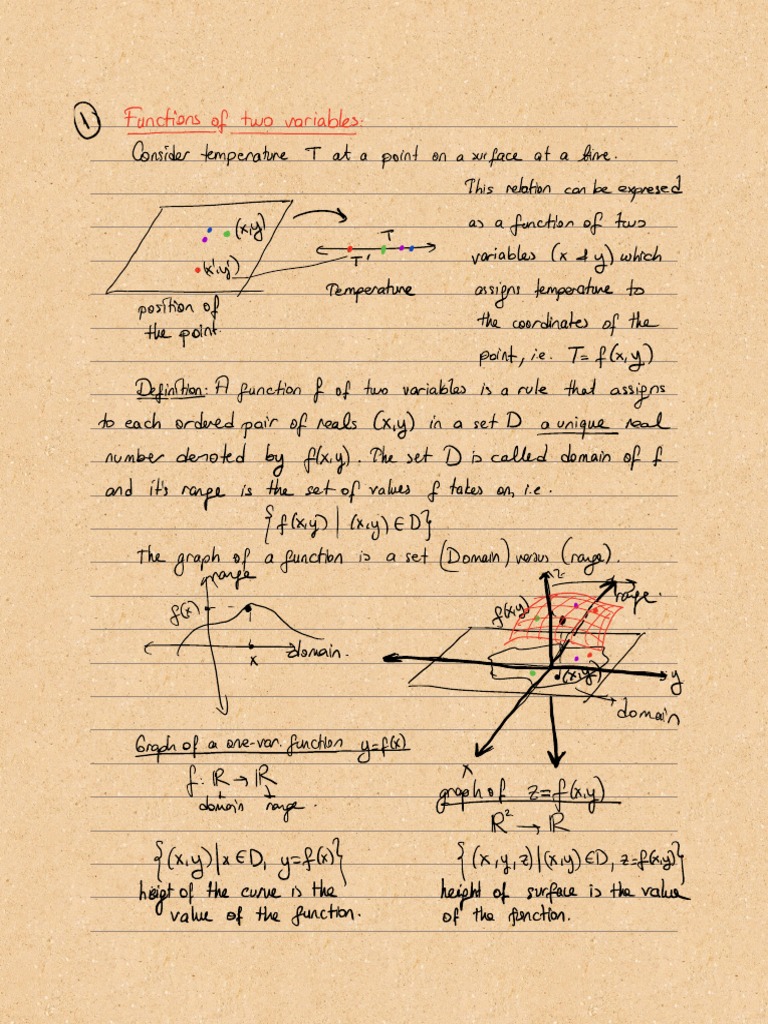 1
Functions of two variables:
Consider temperature T at a point on a surface at a time.
This relation can be expresed
as a function of two
variables (x & y) which
assigns temperature to
the coordinates of the
point, i.e. T = f(x,y)
(x,y)
(x',y')
T
T'
Temperature
position of
the point.
Definition: A function f of two variables is a rule that assigns
to each ordered pair of reals (x,y) in a set D a unique real
number denoted by f(x,y). The set D is called domain of f
and it's range is the set of values f takes on, i.e.
{f(x,y) | (x,y) ∈ D}
The graph of a function is a set (Domain) versus (range).
range
f(x)
x
domain.
z
range.
f(x,y)
(x,y)
y
domain
x
Graph of a one-var. function y=f(x)
f: ℝ → ℝ
domain range.
{(x,y) | x ∈ D, y=f(x)}
heigt of the curve is the
value of the function.
graph of z=f(x,y)
ℝ² → ℝ
{(x,y,z) | (x,y) ∈ D, z=f(x,y)}
height of surface is the value
of the function.